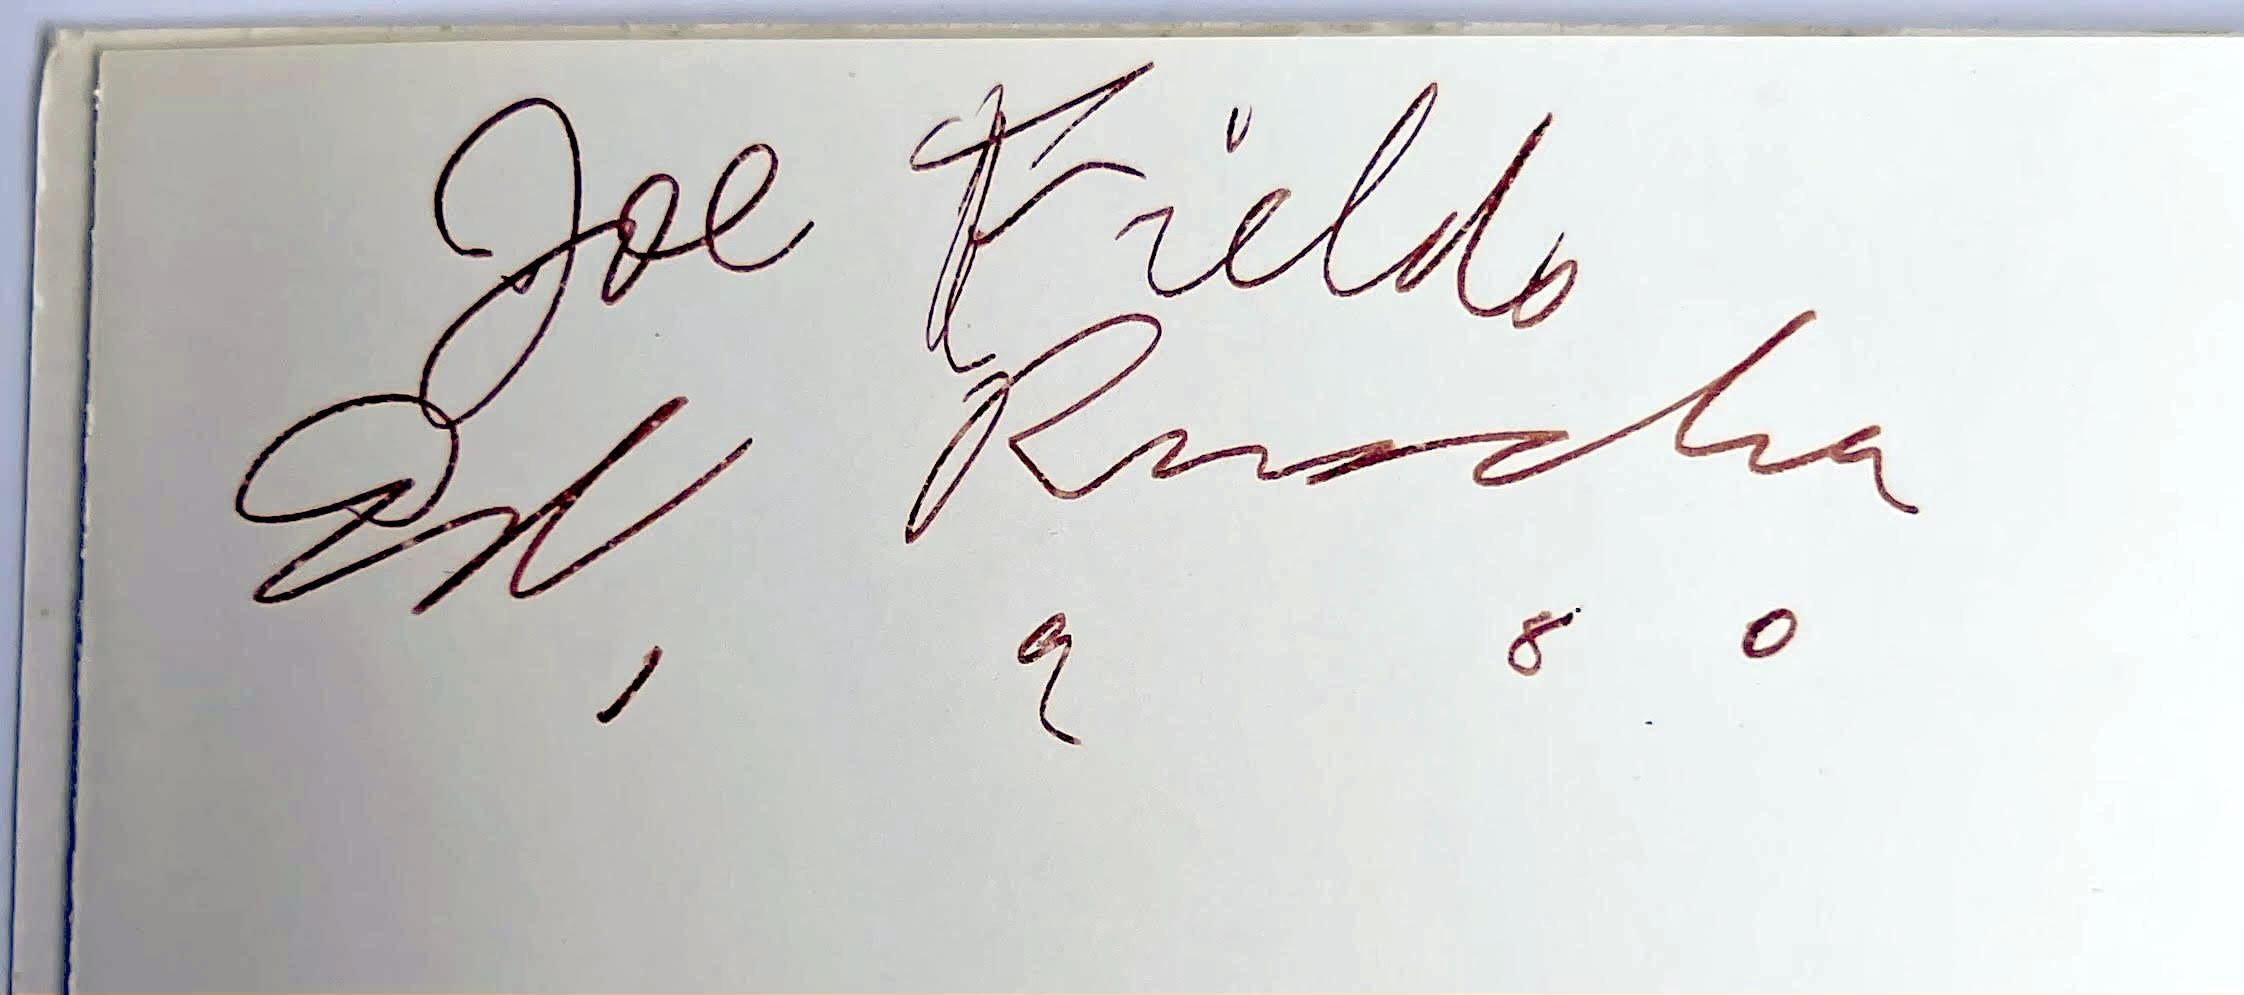 Joe Fields
Ed Ruscha
1980